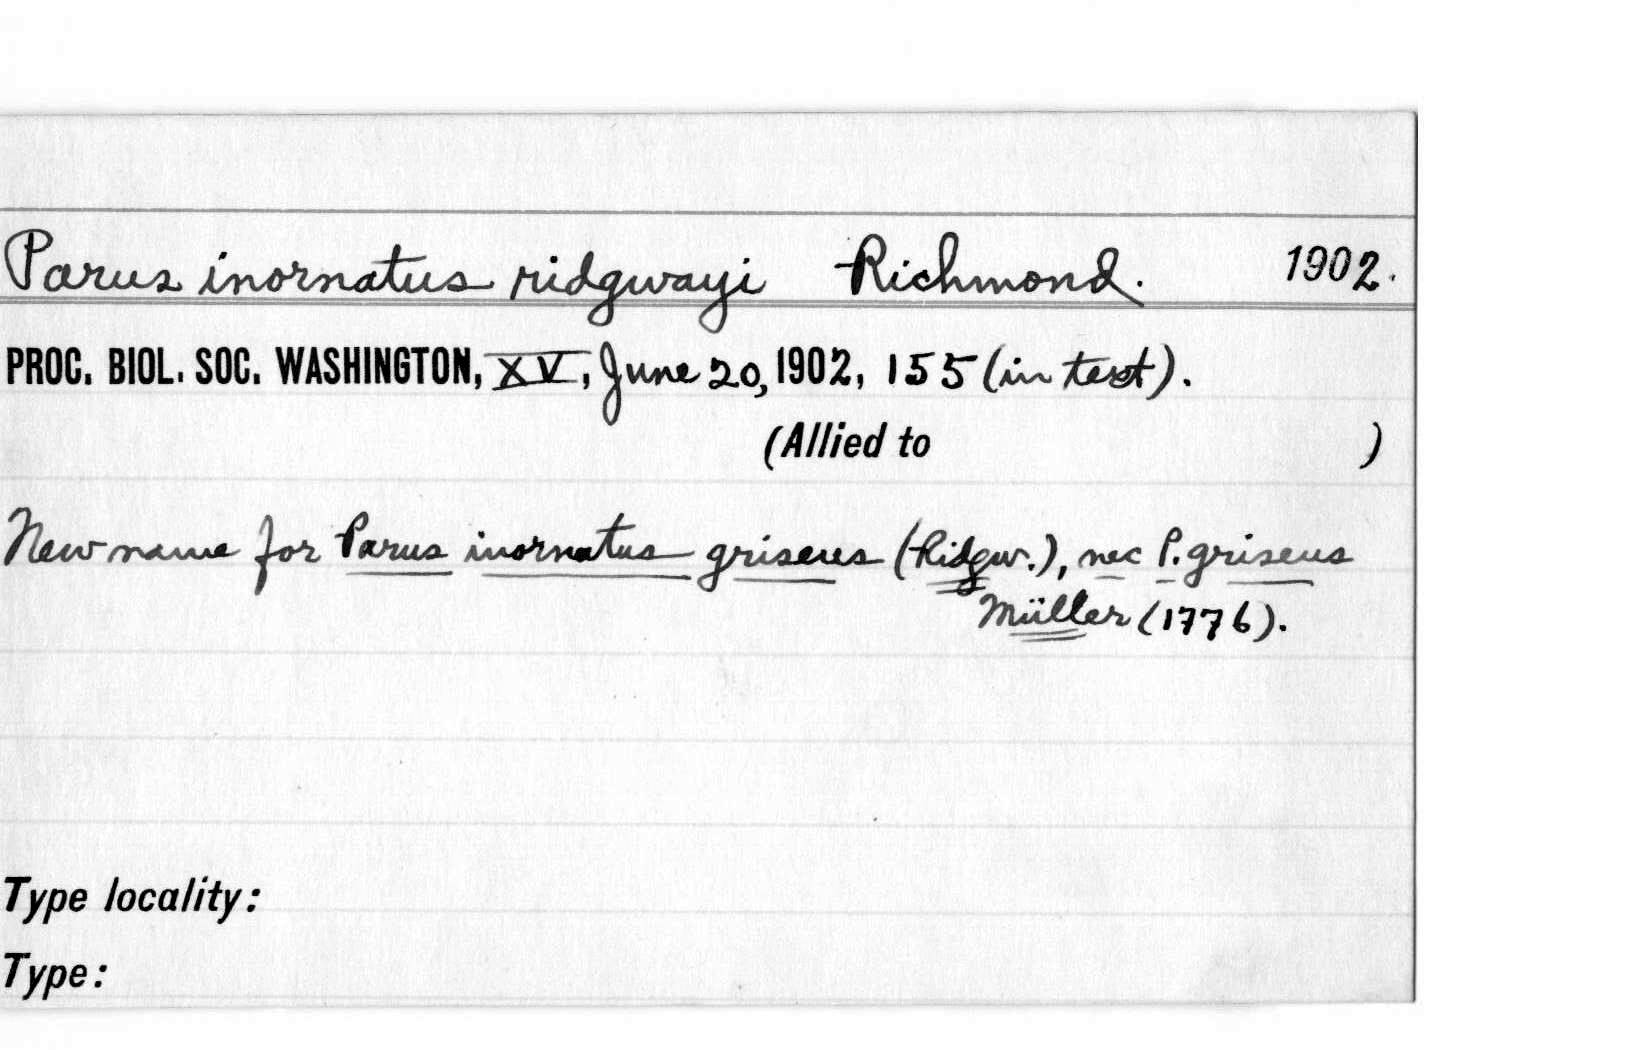 Parus inornatus ridgwayi Richmond. 1902.
PROC. BIOL. SOC. WASHINGTON, XV, June 20, 1902, 155 (in text).
(Allied to )
New name for Parus inornatus griseus (Ridgw.), nec P. griseus
Müller (1776).
Type locality:
Type: